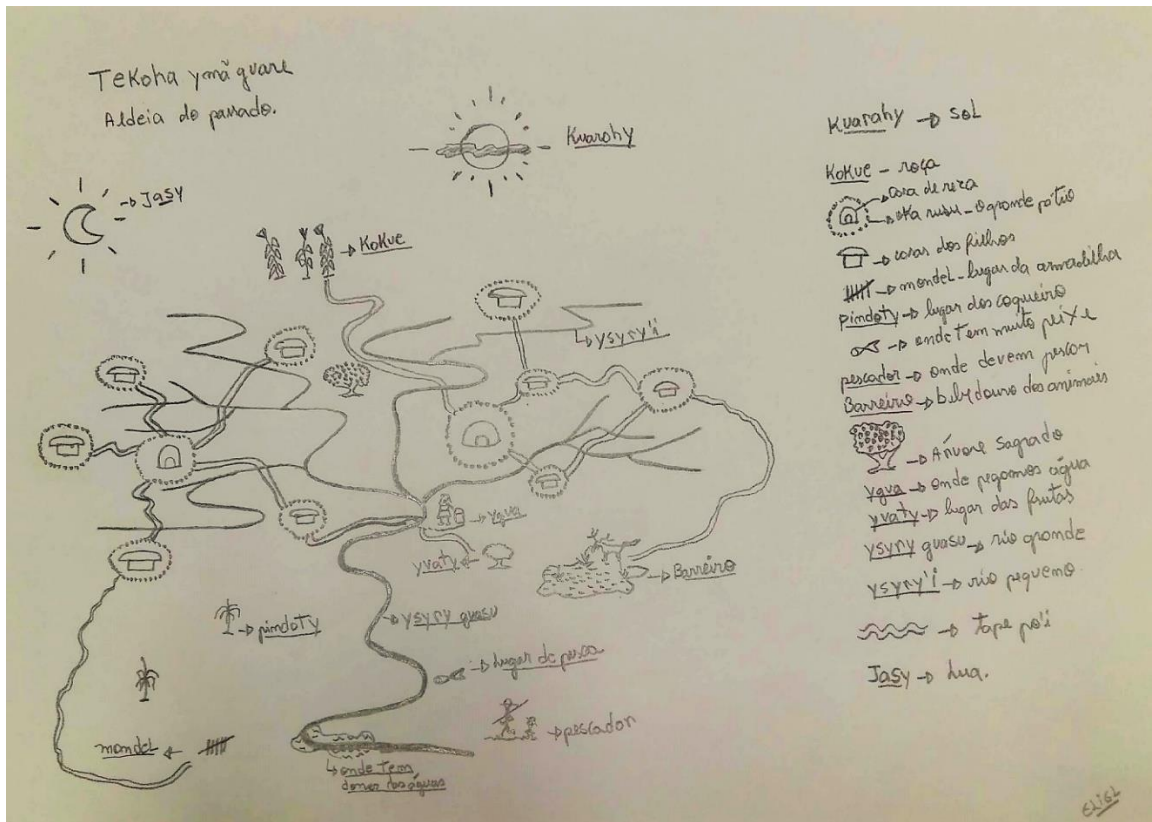 Tekoha ymã guare
Aldeia do passado.
Kuarahy
→ Jasy
→ Kokue
→ ysyry'i
→ ygua
yvaty
→ Barreiro
→ pindoty
→ ysyry guasu
→ lugar de pesca
→ pescador
mondel ←
→ onde tem
donos das águas
Kuarahy → sol
Kokue - roça
→ casa de reza
→ oka rusu - o grande pátio
→ casas dos filhos
→ mondel - lugar da armadilha
pindoty → lugar dos coqueiro
→ onde tem muito peixe
pescador → onde devem pescar
Barreiro → bebedouro dos animais
→ Árvore Sagrado
ygua → onde pegamos água
yvaty → lugar das frutas
ysyry guasu → rio grande
ysyry'i → rio pequeno
→ tape po'i
Jasy → Lua.